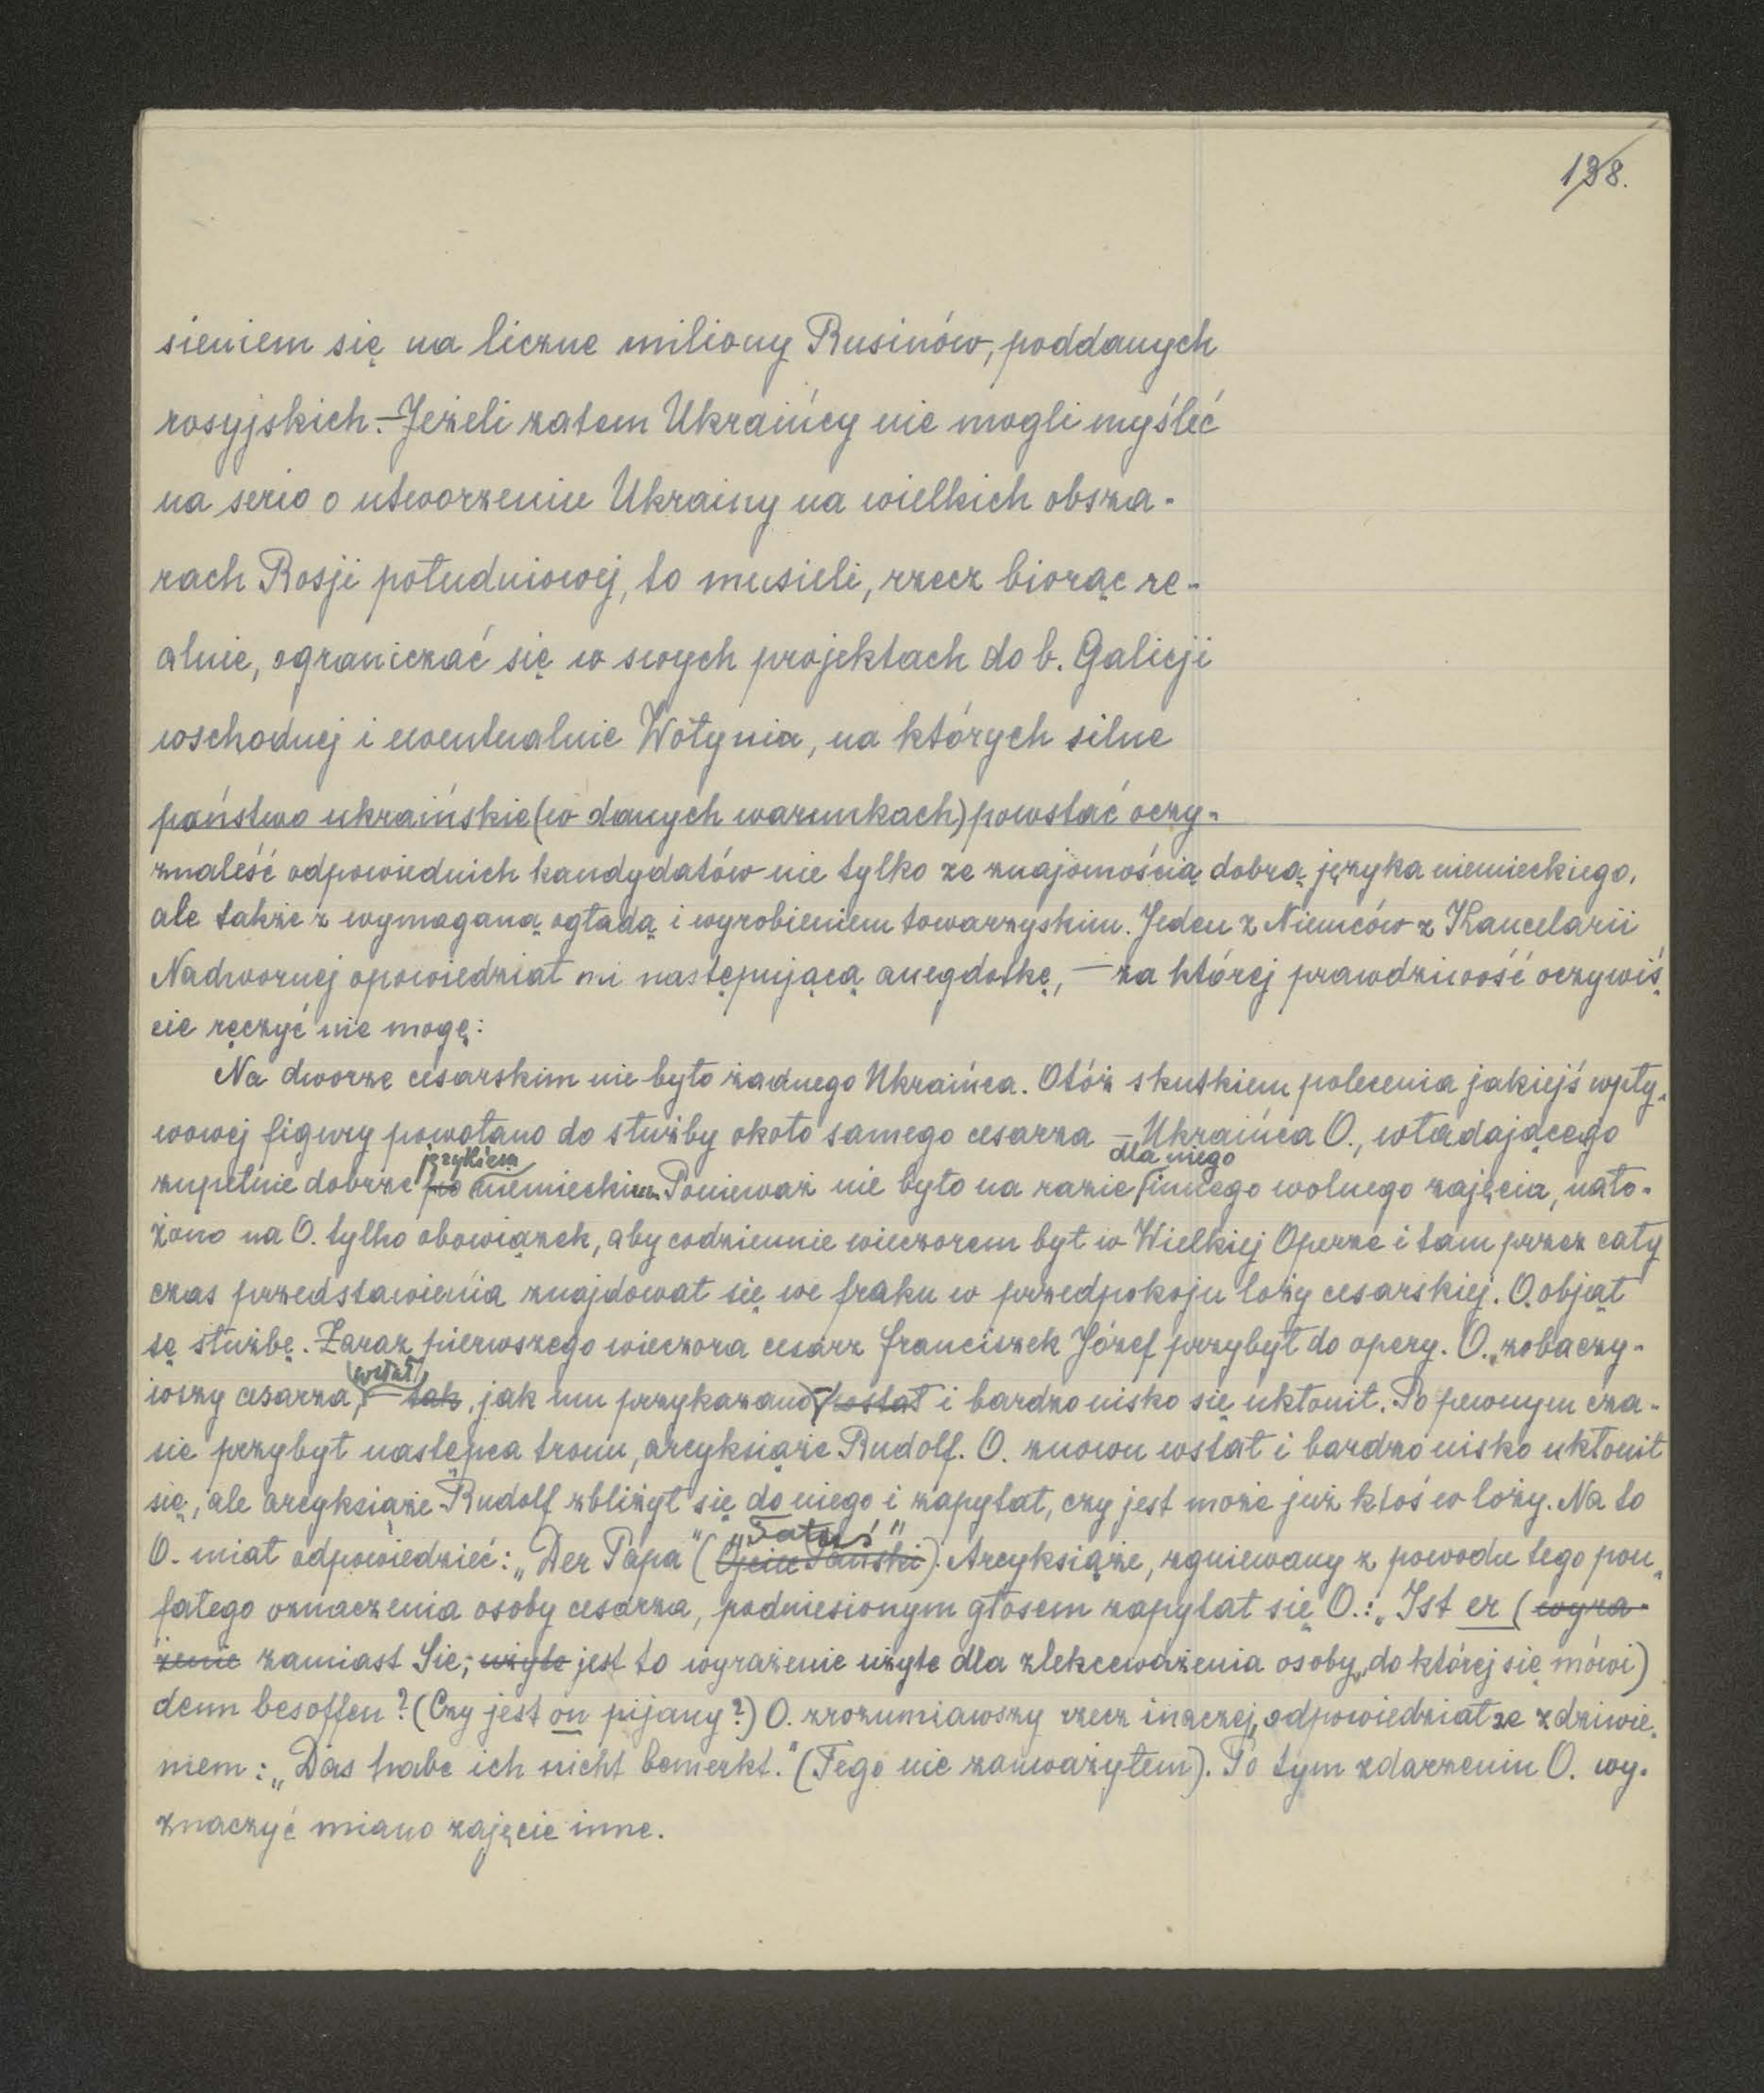 138.
sieniem się na liczne miliony Rusinów, poddanych
rosyjskich. – Jeżeli zatem Ukraińcy nie mogli myśleć
na serio o utworzeniu Ukrainy na wielkich obsza-
rach Rosji południowej, to musieli, rzecz biorąc re-
alnie, ograniczać się w swych projektach do b. Galicji
wschodnej i ewentualnie Wołynia, na których silne
państwo ukraińskie (w danych warunkach) powstać oczy-
znaleść odpowiednich kandydatów nie tylko ze znajomością dobrą języka niemieckiego,
ale także z wymaganą ogładą i wyrobieniem towarzyskim. Jeden z Niemców z Kancelarii
Nadwornej opowiedział mi następującą anegdotkę, – za której prawdziwość oczywiś-
cie ręczyć nie mogę:
Na dworze cesarskim nie było żadnego Ukraińca. Otóż skutkiem polecenia jakiejś wpły-
wowej figury powołano do służby około samego cesarza – Ukraińca O., władającego
językiem dla niego
zupełnie dobrze po niemieckiem. Ponieważ nie było na razie innego wolnego zajęcia, nało-
żono na O. tylko obowiązek, aby codziennie wieczorem był w Wielkiej Operze i tam przez cały
czas przedstawienia znajdował się we fraku w przedpokoju loży cesarskiej. O. objął
tę służbę. Zaraz pierwszego wieczora cesarz Franciszek Józef przybył do opery. O., zobaczy-
wstał
wszy cesarza, – tak, jak mu przykazano, – wstał i bardzo nisko się ukłonił. Po pewnym cza-
sie przybył następca tronu, arcyksiąże Rudolf. O. znowu wstał i bardzo nisko ukłonił
się, ale arcyksiąże Rudolf zbliżył się do niego i zapytał, czy jest może już ktoś w loży. Na to
„Tatuś"
O. miał odpowiedzieć: „Der Papa" (Ojciec Pański). Arcyksiąże, zgniewany z powodu tego pou-
fałego oznaczenia osoby cesarza, podniesionym głosem zapytał się O.: „Ist er (wyra-
żenie zamiast Sie; użyte jest to wyrażenie użyte dla zlekceważenia osoby, do której się mówi)
denn besoffen? (Czy jest on pijany?) O. zrozumiawszy rzecz inaczej, odpowiedział ze zdziwie-
niem: „Das habe ich nicht bemerkt." (Tego nie zauważyłem). Po tym zdarzeniu O. wy-
znaczyć miano zajęcie inne.